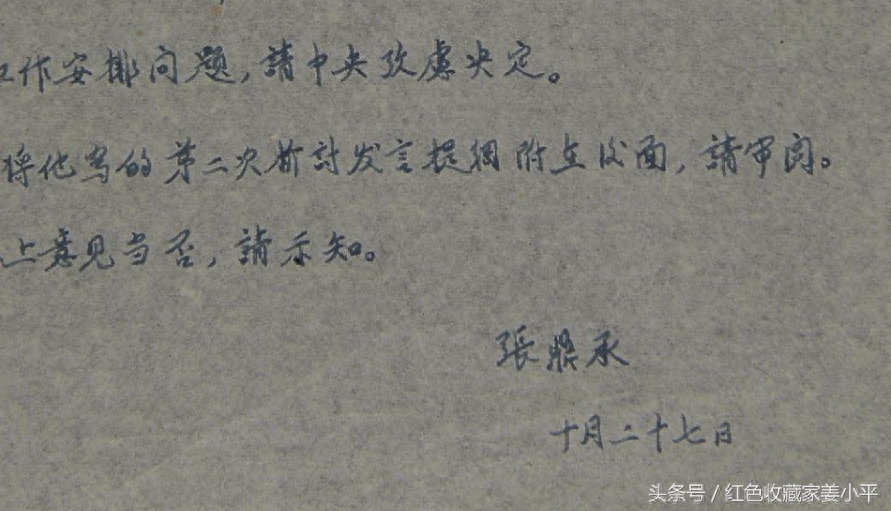 工作安排问题,請中央攷慮决定。
将他写的第二次检討发言提綱附在后面,請审阅。
上意见当否,請示知。
張鼎承
十月二十七日
头条号/红色收藏家姜小平